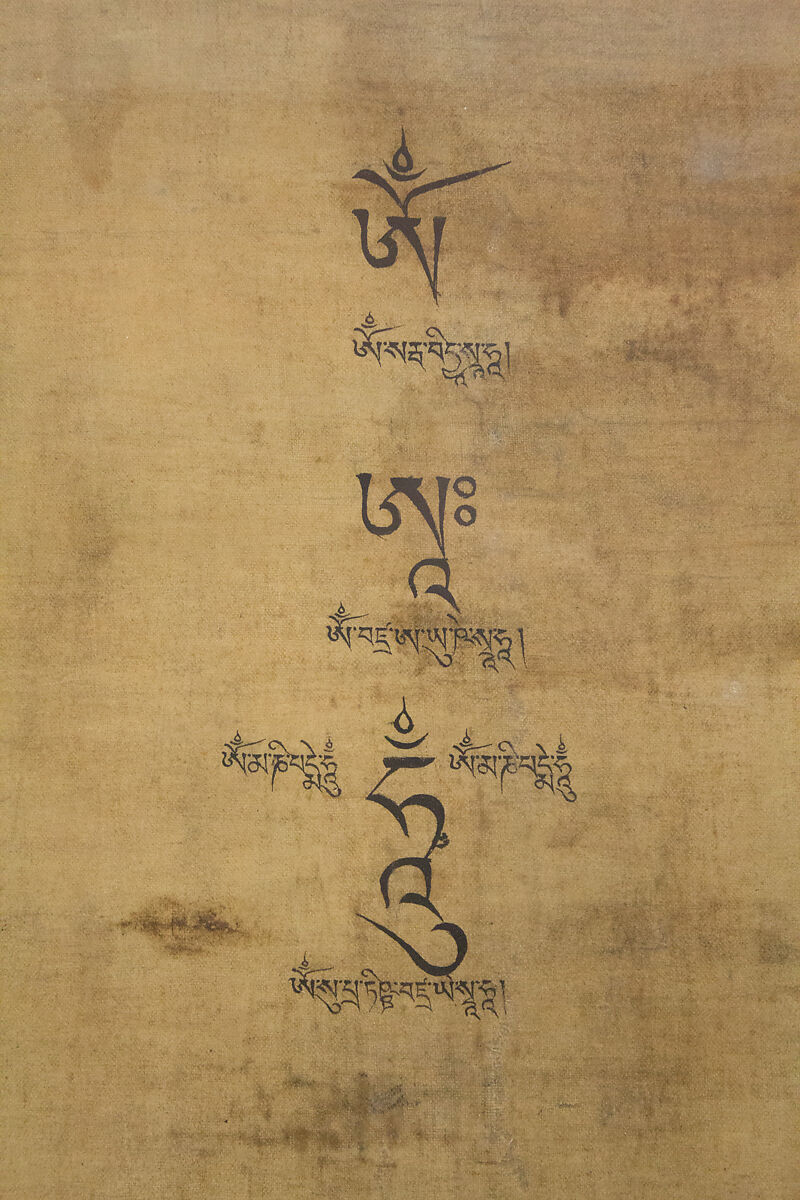 ཨོཾ
ཨོཾ་སརྦ་བིདྱཱ་སྭཱ་ཧཱ།
ཨཱཿ
ཨོཾ་བཛྲ་ཨཱ་ཡུ་ཥེ་སྭཱ་ཧཱ།
ཨོཾ་མ་ཎི་པདྨེ་ཧཱུྃ ཧཱུྃ ཨོཾ་མ་ཎི་པདྨེ་ཧཱུྃ
ཨོཾ་སུ་པྲ་ཏིཥྛ་བཛྲ་ཡེ་སྭཱ་ཧཱ།